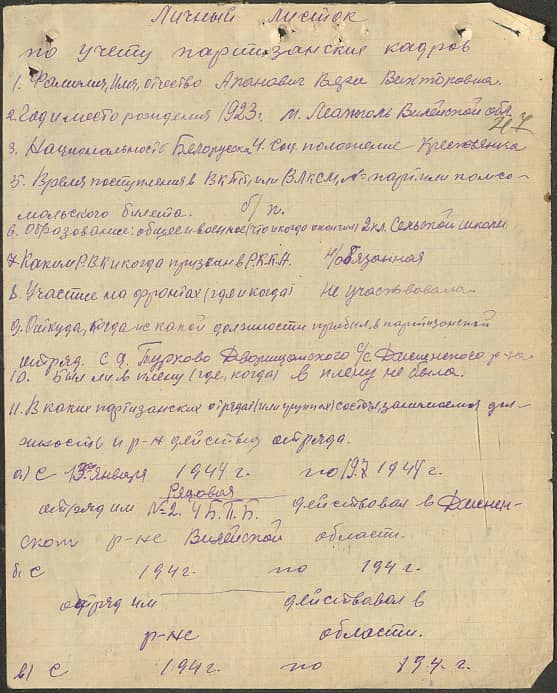 Личный листок
по учету партизанских кадров
1. Фамилия, Имя, отчество Апанович Вера Викторовна.
2. Год и место рождения 1923 г. м. Леажполь Вилейской обл
47
3. Национальность Белоруска 4. Соц. положение Крестьянка
5. Время поступления в ВКП(б), или ВЛКСМ, № парт. или комсо-
мольского билета. б/п.
6. Образование: общее и военное (что и когда окончил) 2 кл. Сельской школы
7. Каким Р.В.К и когда призван в Р.К.К.А. н/обязанная
8. Участие на фронтах (где и когда) Не участвовала
9. Откуда, когда и с какой должности прибыл в партизанский
отряд. с д. Турково Дворищанского с/с Дисненского р-на
10. Был ли в плену (где, когда) в плену не была.
11. В каких партизанских отрядах (или группах) состоял, занимаемая дол-
жность и р-н действия отряда.
а) с 19го Января 1944 г. по 19.7 1944 г.
Рядовая
отряд им №2. 4 Б.П.Б. действовал в Диснен-
ском р-не Вилейской области.
б) с 194 г. по 194 г.
отряд им действовал в
р-не области.
в) с 194 г. по 194 г.